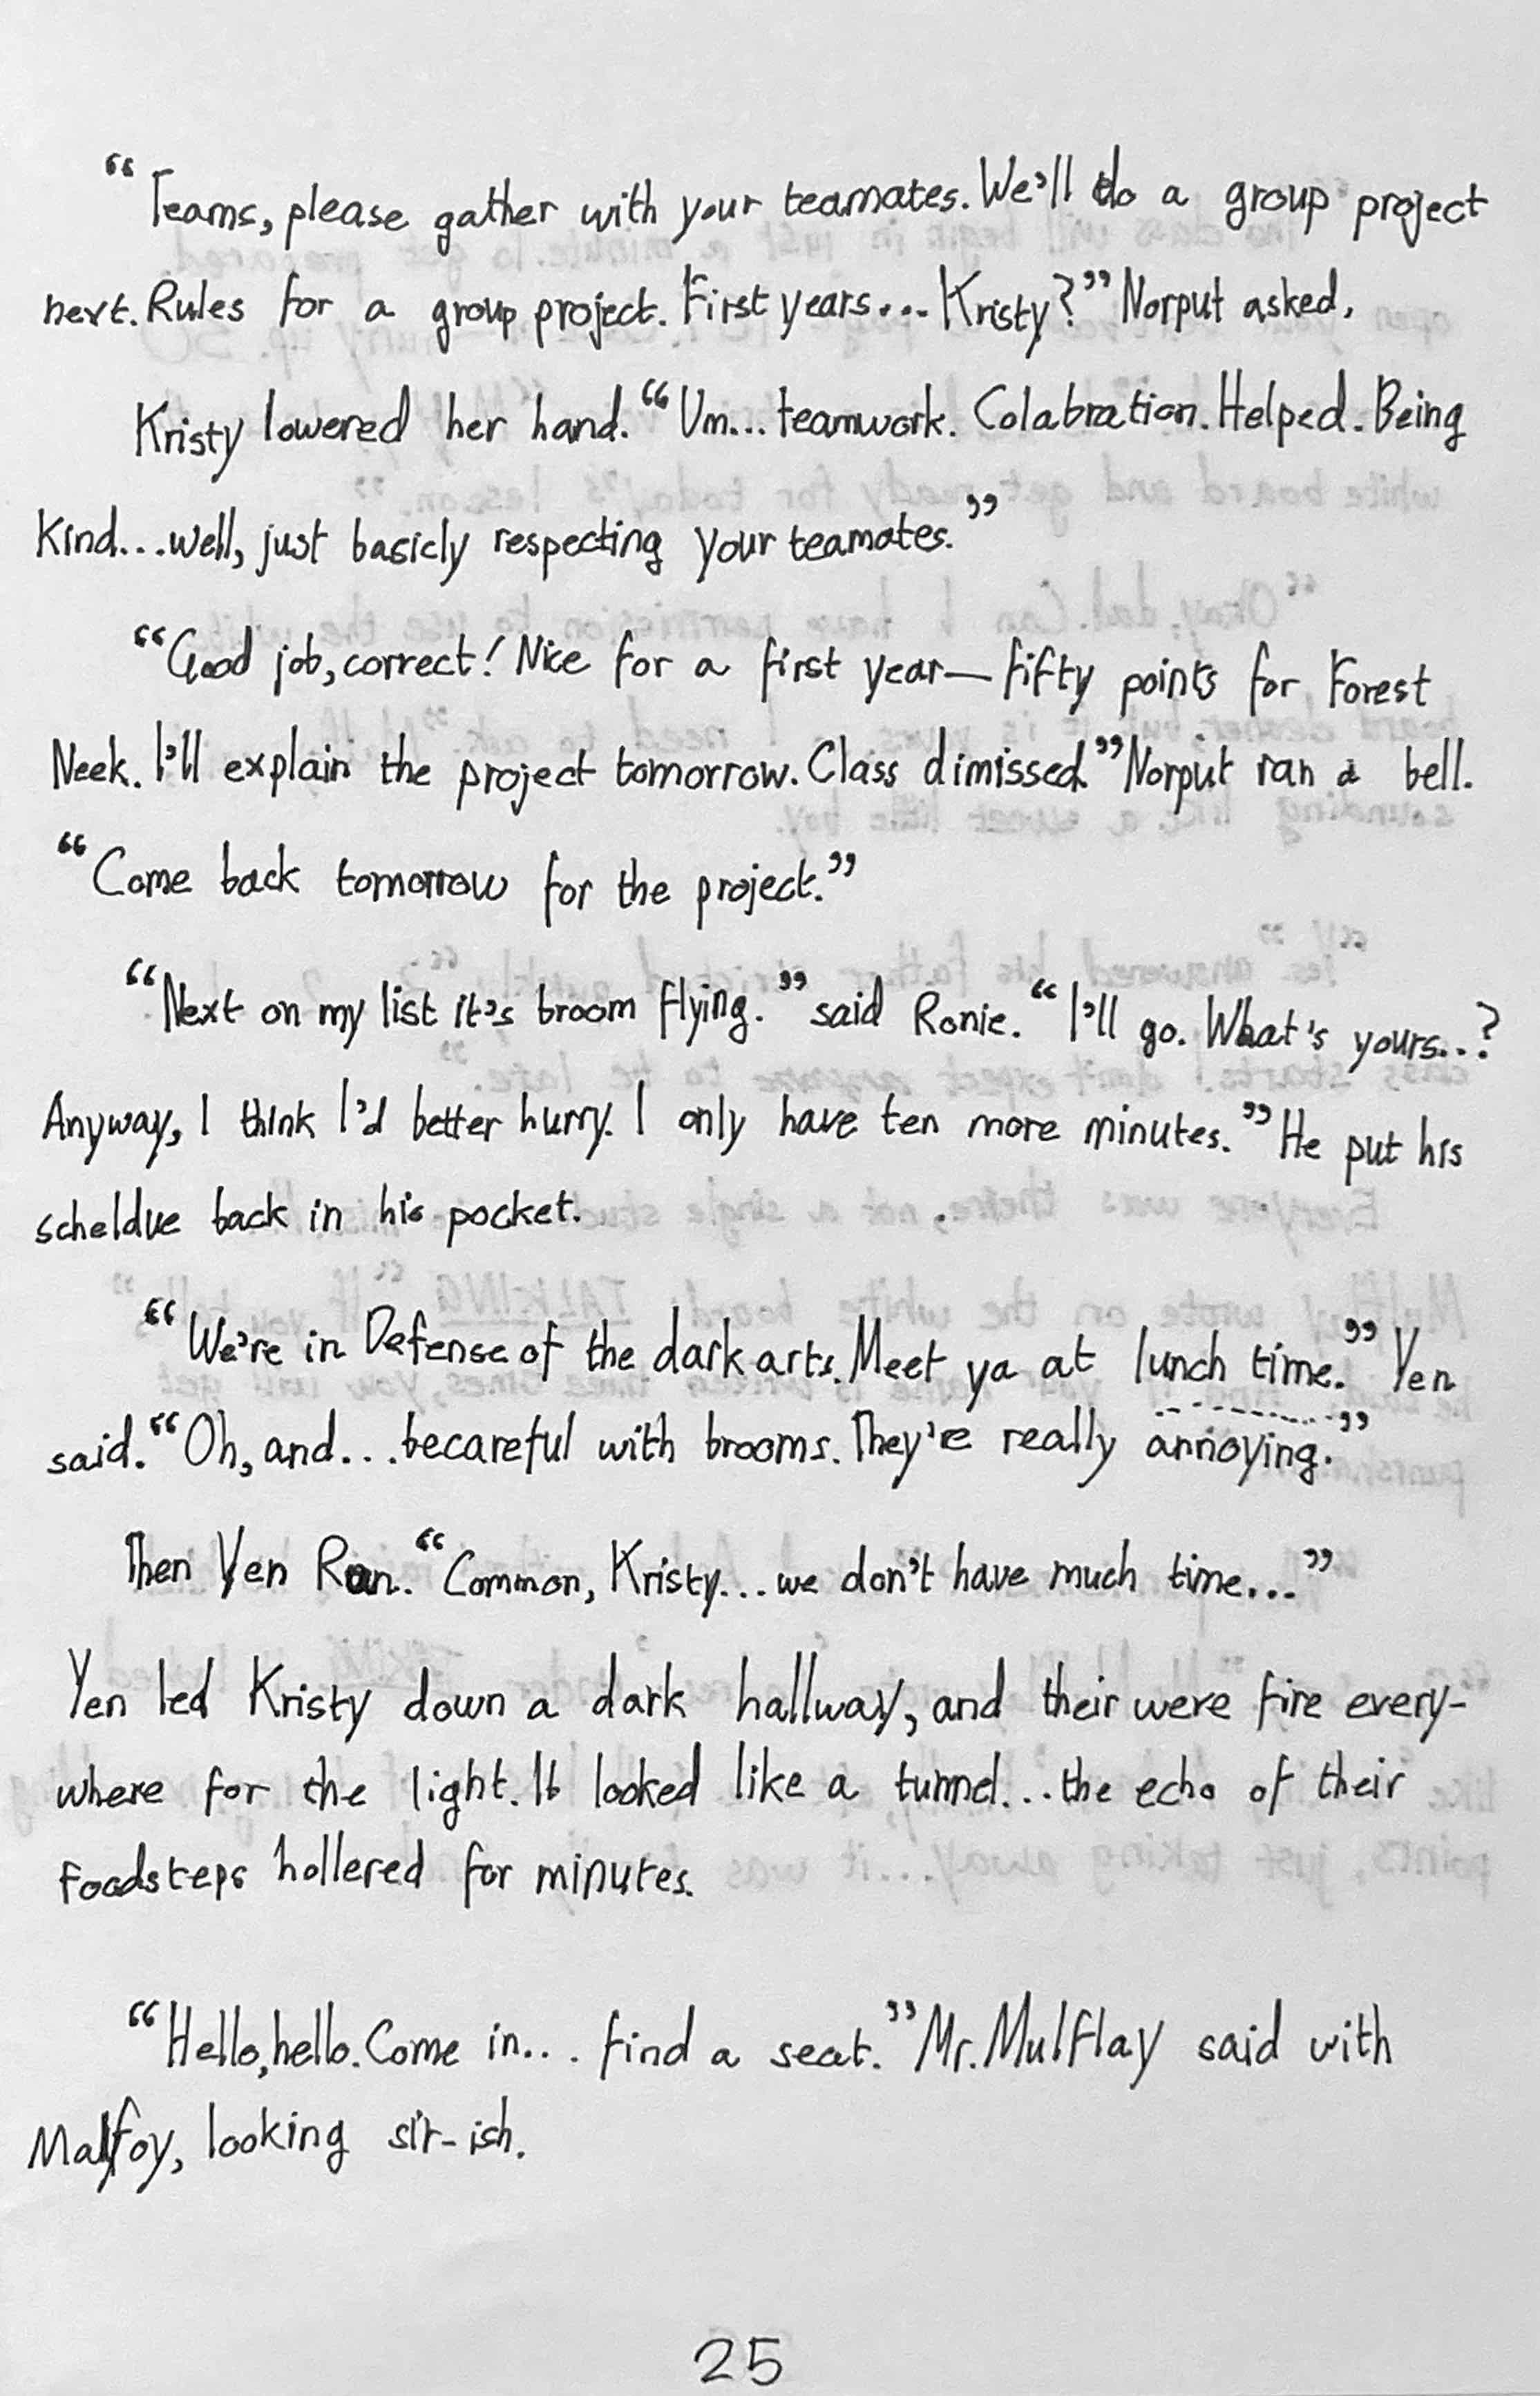 “Teams, please gather with your teamates. We’ll do a group project
next. Rules for a group project. First years... Kristy?” Norput asked.
Kristy lowered her hand. “Um... teamwork. Colabration. Helped. Being
Kind... well, just basicly respecting your teamates.”
“Good job, correct! Nice for a first year—fifty points for Forest
Neek. I’ll explain the project tomorrow. Class dimissed.” Norput ran a bell.
“Come back tomorrow for the project.”
“Next on my list it’s broom flying.” said Ronie. “I’ll go. What’s yours...?
Anyway, I think I’d better hurry. I only have ten more minutes.” He put his
scheldue back in his pocket.
“We’re in Defense of the dark arts. Meet ya at lunch time.” Yen
said. “Oh, and... becareful with brooms. They’re really annoying.”
Then Yen Ran. “Common, Kristy... we don’t have much time...”
Yen led Kristy down a dark hallway, and their were fire every-
where for the light. It looked like a tunnel... the echo of their
foodsteps hollered for minutes.
“Hello, hello. Come in... find a seat.” Mr. Mulflay said with
Malfoy, looking sir-ish.
25